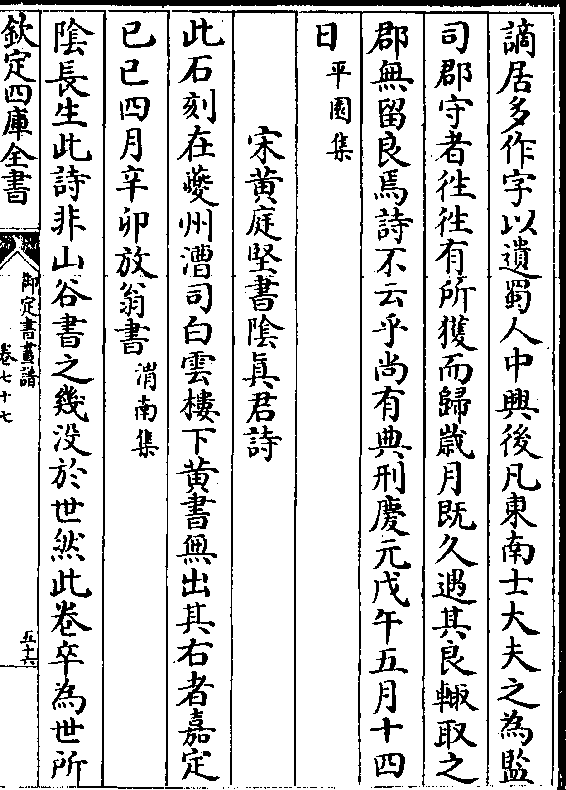 謫居多作字以遺蜀人中興後凡東南士大夫之為監
司郡守者徃徃有所獲而歸歳月既久遇其良輙取之
郡無留良焉詩不云乎尚有典刑慶元戊午五月十四
日平園集
宋黄庭堅書隂真君詩
此石刻在䕫州漕司白雲樓下黄書無出其右者嘉定
己巳四月辛卯放翁書渭南集
隂長生此詩非山谷書之幾没於世然此卷卒為世所
欽定四庫全書
御定書畫譜
卷七十七
五十六